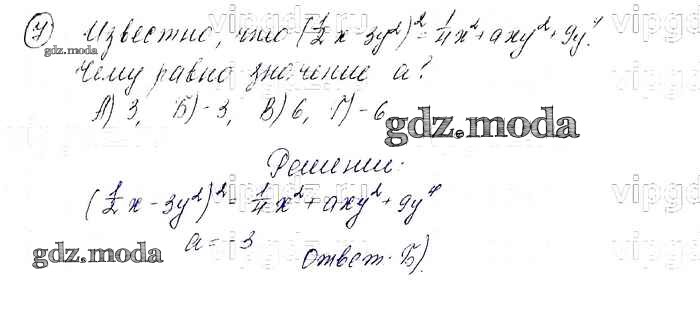 7) Известно, что (1/2x - 3y²)² = 1/4x² + axy² + 9y⁴.
Чему равно значение a?
А) 3, Б) -3, В) 6, Г) -6
Решение:
(1/2x - 3y²)² = 1/4x² + axy² + 9y⁴
a = -3
Ответ: Б).
gdz.moda
gdz.moda
gdz.moda
vipgdz.ru
vipgdz.ru